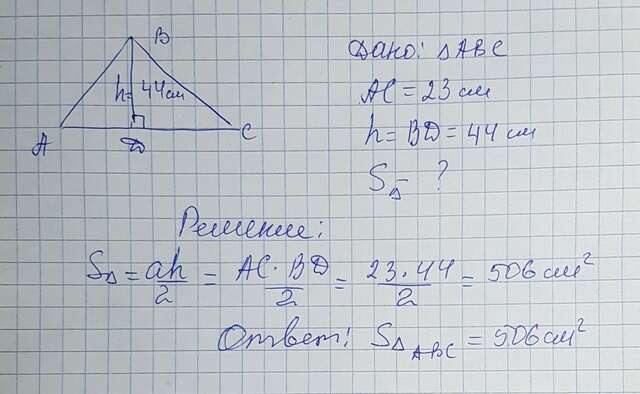 B
h=44см
A
D
C
Дано: △ABC
AC = 23 см
h = BD = 44 см
S△ - ?
Решение:
S△ = ah/2 = AC · BD/2 = 23 · 44/2 = 506 см²
Ответ: S△ABC = 506 см²